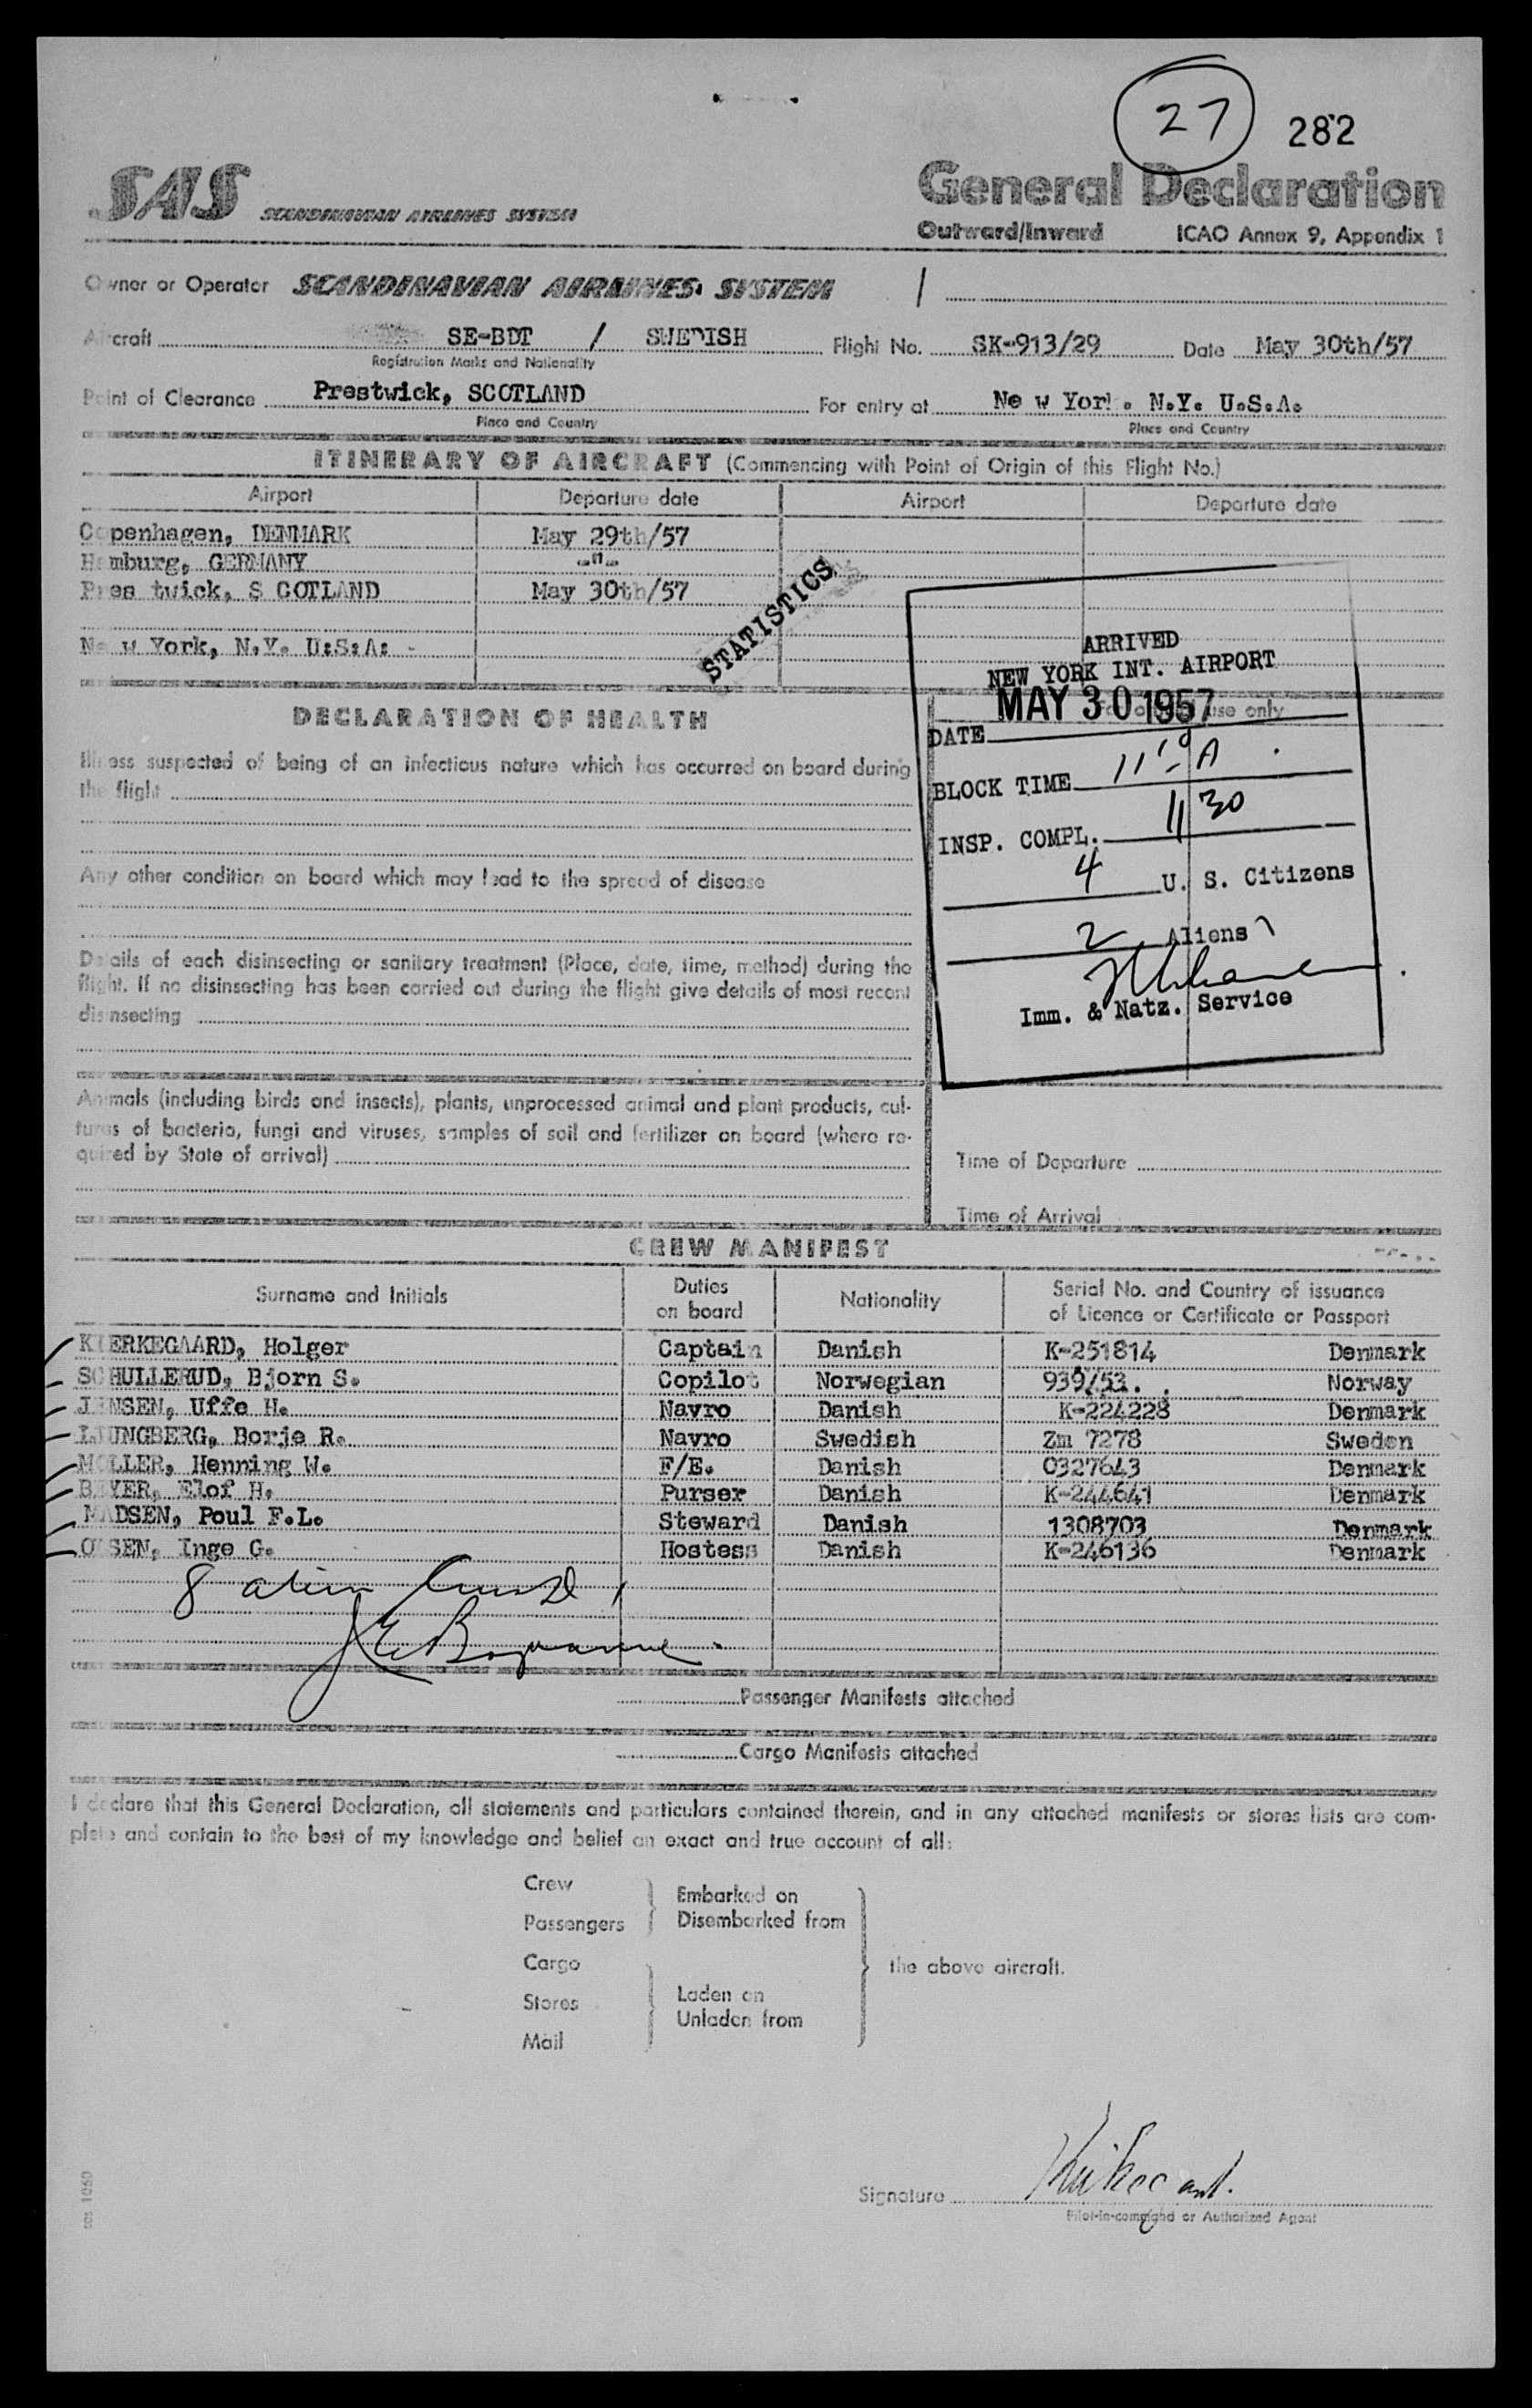 27 282
SAS SCANDINAVIAN AIRLINES SYSTEM
General Declaration
Outward/Inward ICAO Annex 9, Appendix 1
Owner or Operator SCANDINAVIAN AIRLINES SYSTEM /
Aircraft SE-BDT / SWEDISH Flight No. SK-913/29 Date May 30th/57
Registration Marks and Nationality
Point of Clearance Prestwick, SCOTLAND For entry at Ne w York. N.Y. U.S.A.
Place and Country Place and Country
ITINERARY OF AIRCRAFT (Commencing with Point of Origin of this Flight No.)
Airport Departure date Airport Departure date
Copenhagen, DENMARK May 29th/57
Hamburg, GERMANY -"-
Pres twick, S COTLAND May 30th/57
STATISTICS
Ne w York, N.Y. U:S:A: -
ARRIVED
NEW YORK INT. AIRPORT
DATE MAY 30 1957
For official use only
BLOCK TIME 11 10 A
INSP. COMPL. 11 30
4 U. S. Citizens
2 Aliens
Imm. & Natz. Service
DECLARATION OF HEALTH
Illness suspected of being of an infectious nature which has occurred on board during
the flight
Any other condition on board which may lead to the spread of disease
Details of each disinsecting or sanitary treatment (Place, date, time, method) during the
flight. If no disinsecting has been carried out during the flight give details of most recent
disinsecting
Animals (including birds and insects), plants, unprocessed animal and plant products, cul-
tures of bacteria, fungi and viruses, samples of soil and fertilizer on board (where re-
quired by State of arrival)
Time of Departure
Time of Arrival
CREW MANIFEST
Surname and Initials Duties on board Nationality Serial No. and Country of issuance of Licence or Certificate or Passport
KIERKEGAARD, Holger Captain Danish K-251814 Denmark
SCHULLERUD, Bjorn S. Copilot Norwegian 939/53. Norway
JENSEN, Uffe H. Navro Danish K-224228 Denmark
LJUNGBERG, Borje R. Navro Swedish Zm 7278 Sweden
MOLLER, Henning W. F/E. Danish 0327643 Denmark
BEYER, Elof H. Purser Danish K-244641 Denmark
MADSEN, Poul F.L. Steward Danish 1308703 Denmark
OLSEN, Inge G. Hostess Danish K-246136 Denmark
8 alien
Passenger Manifests attached
Cargo Manifests attached
I declare that this General Declaration, all statements and particulars contained therein, and in any attached manifests or stores lists are com-
plete and contain to the best of my knowledge and belief an exact and true account of all:
Crew
Passengers
Embarked on
Disembarked from
Cargo
Stores
Mail
Laden on
Unladen from
the above aircraft.
Signature
Pilot-in-command or Authorized Agent